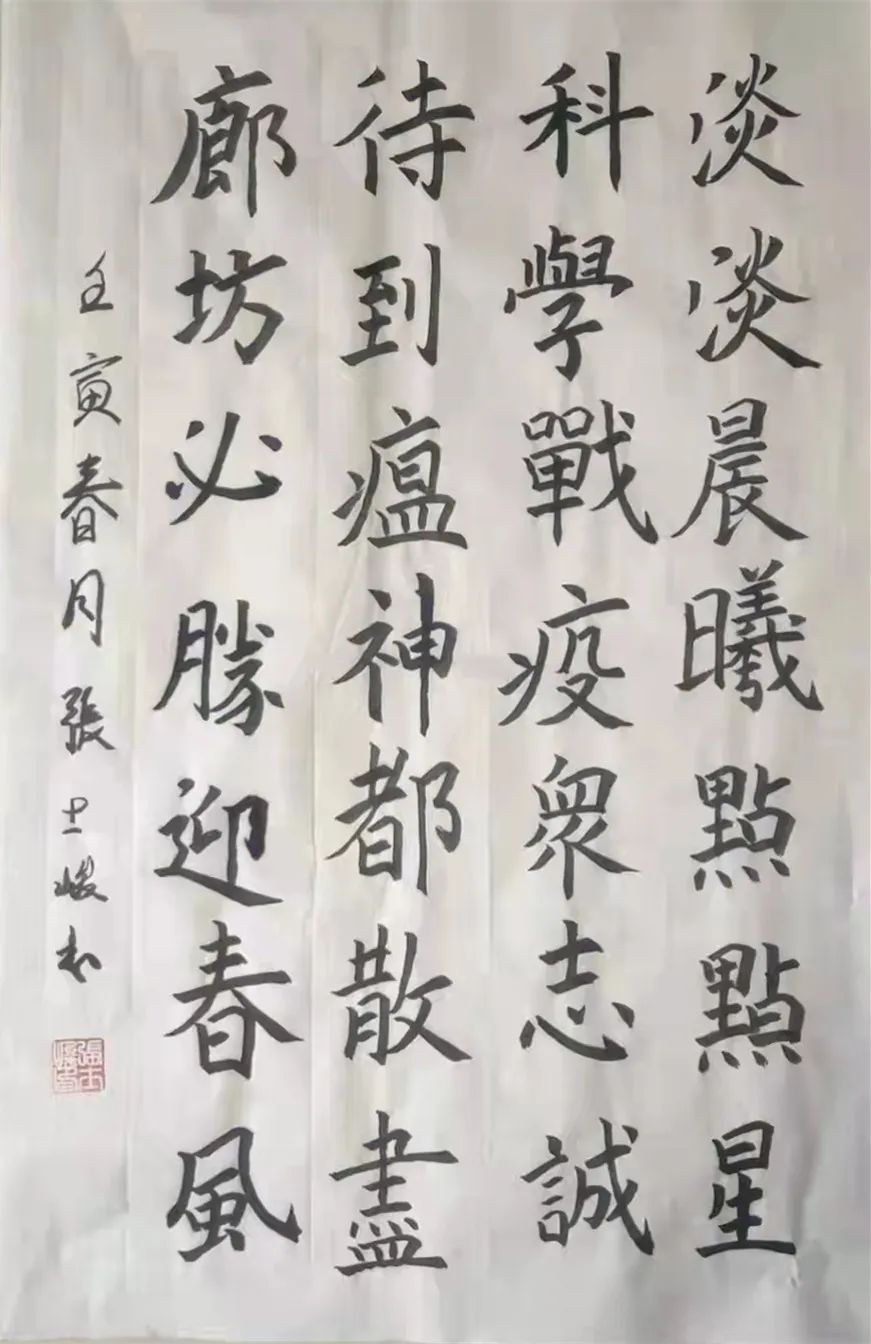 淡淡晨曦點點星
科學戰疫衆志誠
待到瘟神都散盡
廊坊必勝迎春風
壬寅春月張士峻书